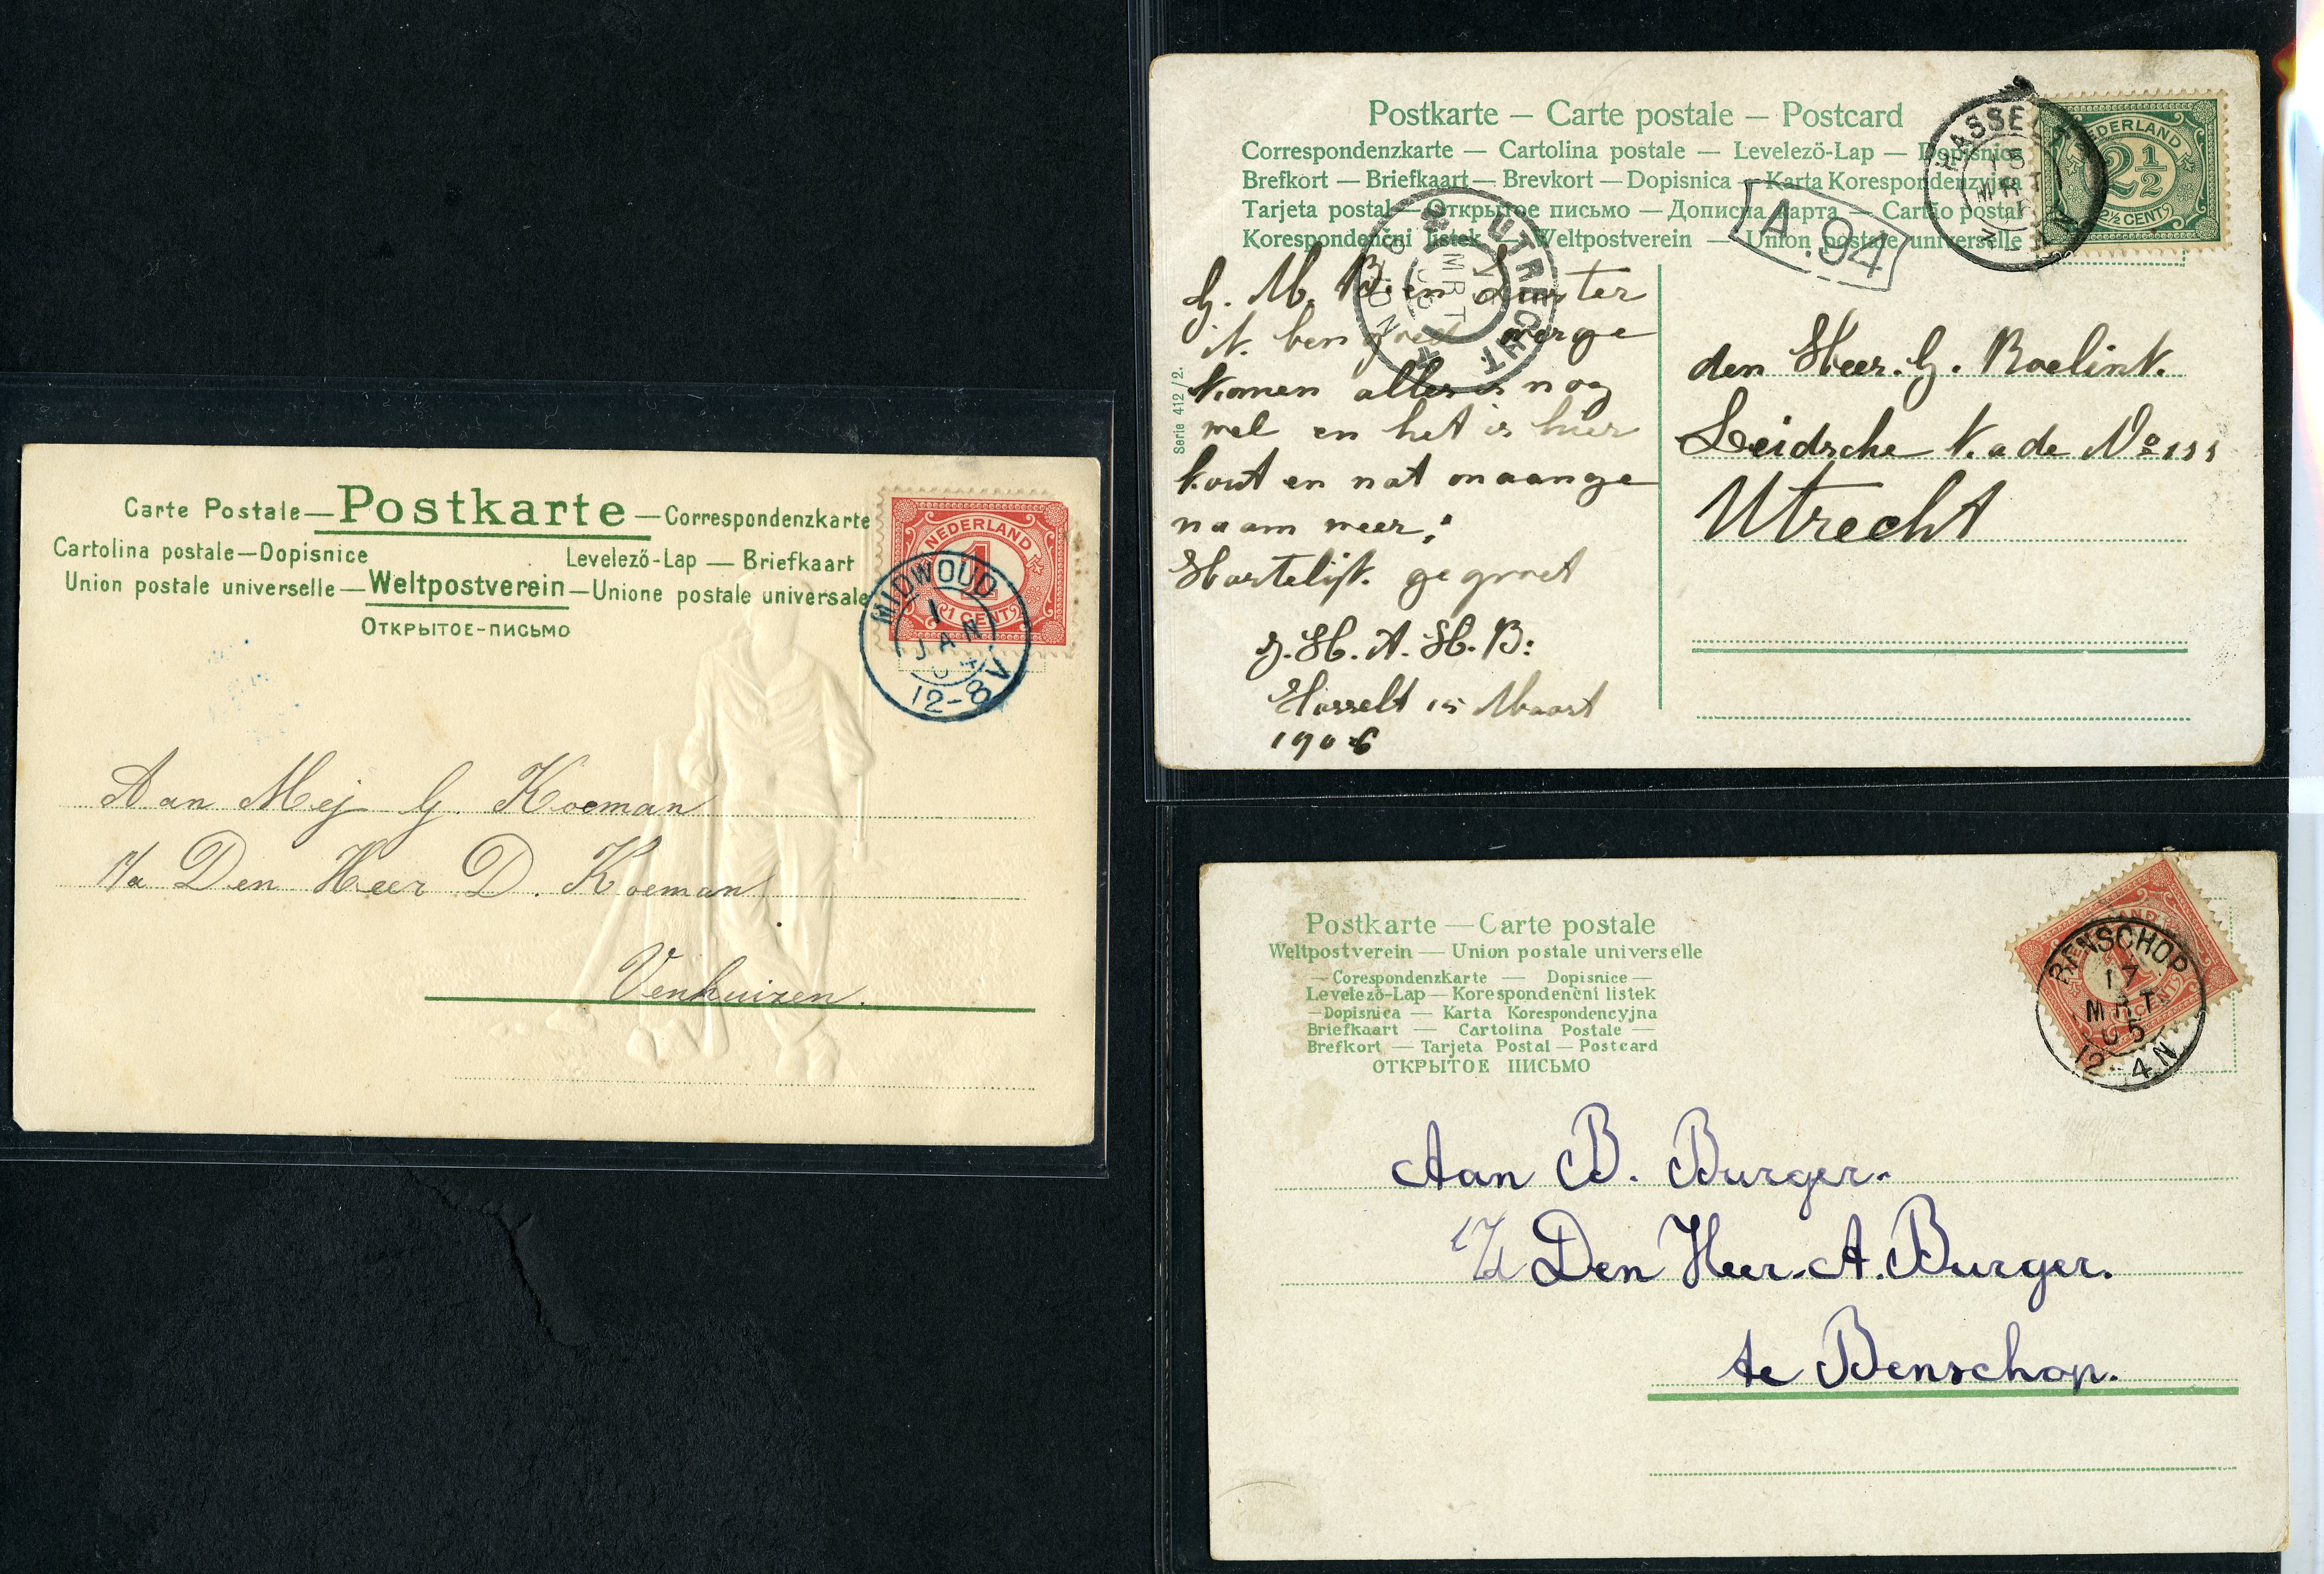 Carte Postale — Postkarte — Correspondenzkarte
Cartolina postale — Dopisnice Levelező-Lap — Briefkaart
Union postale universelle — Weltpostverein — Unione postale universale
Открытое-письмо
NEDERLAND
1
1 CENT
MIDWOUD
1
JAN
12-8V
Aan Mej G. Koeman
p/a Den Heer D. Koeman
Venhuizen.
Postkarte — Carte postale — Postcard
Correspondenzkarte — Cartolina postale — Levelezö-Lap — Dopisnice
Brefkort — Briefkaart — Brevkort — Dopisnica — Karta Korespondenzyjna
Tarjeta postal — Открытое письмо — Дописна карта — Cartão postal
Korespondenční listek — Weltpostverein — Union postale universelle
NEDERLAND
2½
2½ CENT
HASSELT
15
MRT
A.94
UTRECHT
MRT
Serie 412/2.
G. M. B en Zuster
ik ben goed overge
komen alles is nog
wel en het is hier
kout en nat onaange
naam weer;
Hartelijk gegroet
H. A. H. B:
Hasselt 15 Maart
1906
den Heer. G. Roelink.
Leidsche Kade No 111
Utrecht
Postkarte — Carte postale
Weltpostverein — Union postale universelle
— Corespondenzkarte — Dopisnice —
Levelező-Lap — Korespondenční listek
— Dopisnica — Karta Korespondencyjna
Briefkaart — Cartolina Postale —
Brefkort — Tarjeta Postal — Postcard
ОТКРЫТОЕ ПИСЬМО
BENSCHOP
17
MRT
05
12-4N
Aan B. Burger.
Den Heer. A. Burger.
te Benschop.